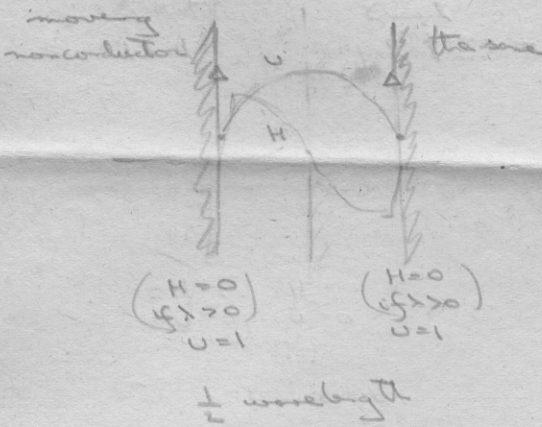 moving
nonconductor
the same
U
H
(H=0
if λ>0)
U=1
(H=0
if λ>>0)
U=1
1/2 wavelength